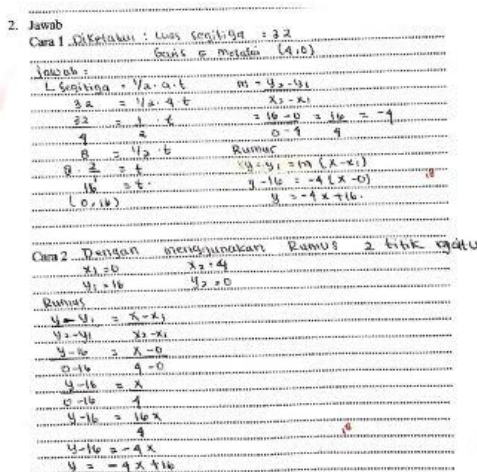 2. Jawab
Cara 1 Diketahui : Luas segitiga = 32
Garis g melalui (4,0)
Jawab =
L segitiga = 1/2 . a . t
32 = 1/2 . 4 . t
32/4 = 1/2 . t
8 = 1/2 . t
8 . 2 = t
16 = t .
(0,16)
m = y2 - y1 / x2 - x1
= 16 - 0 / 0 - 4 = 16 / 4 = -4
Rumus
y - y1 = m (x - x1)
y - 16 = -4 (x - 0)
y = -4x + 16 .
Cara 2 Dengan menggunakan Rumus 2 titik yaitu
x1 = 0 x2 = 4
y1 = 16 y2 = 0
Rumus
y - y1 / y2 - y1 = x - x1 / x2 - x1
y - 16 / 0 - 16 = x - 0 / 4 - 0
y - 16 / 0 - 16 = x / 4
y - 16 = 16x / 4
y - 16 = -4x
y = -4x + 16